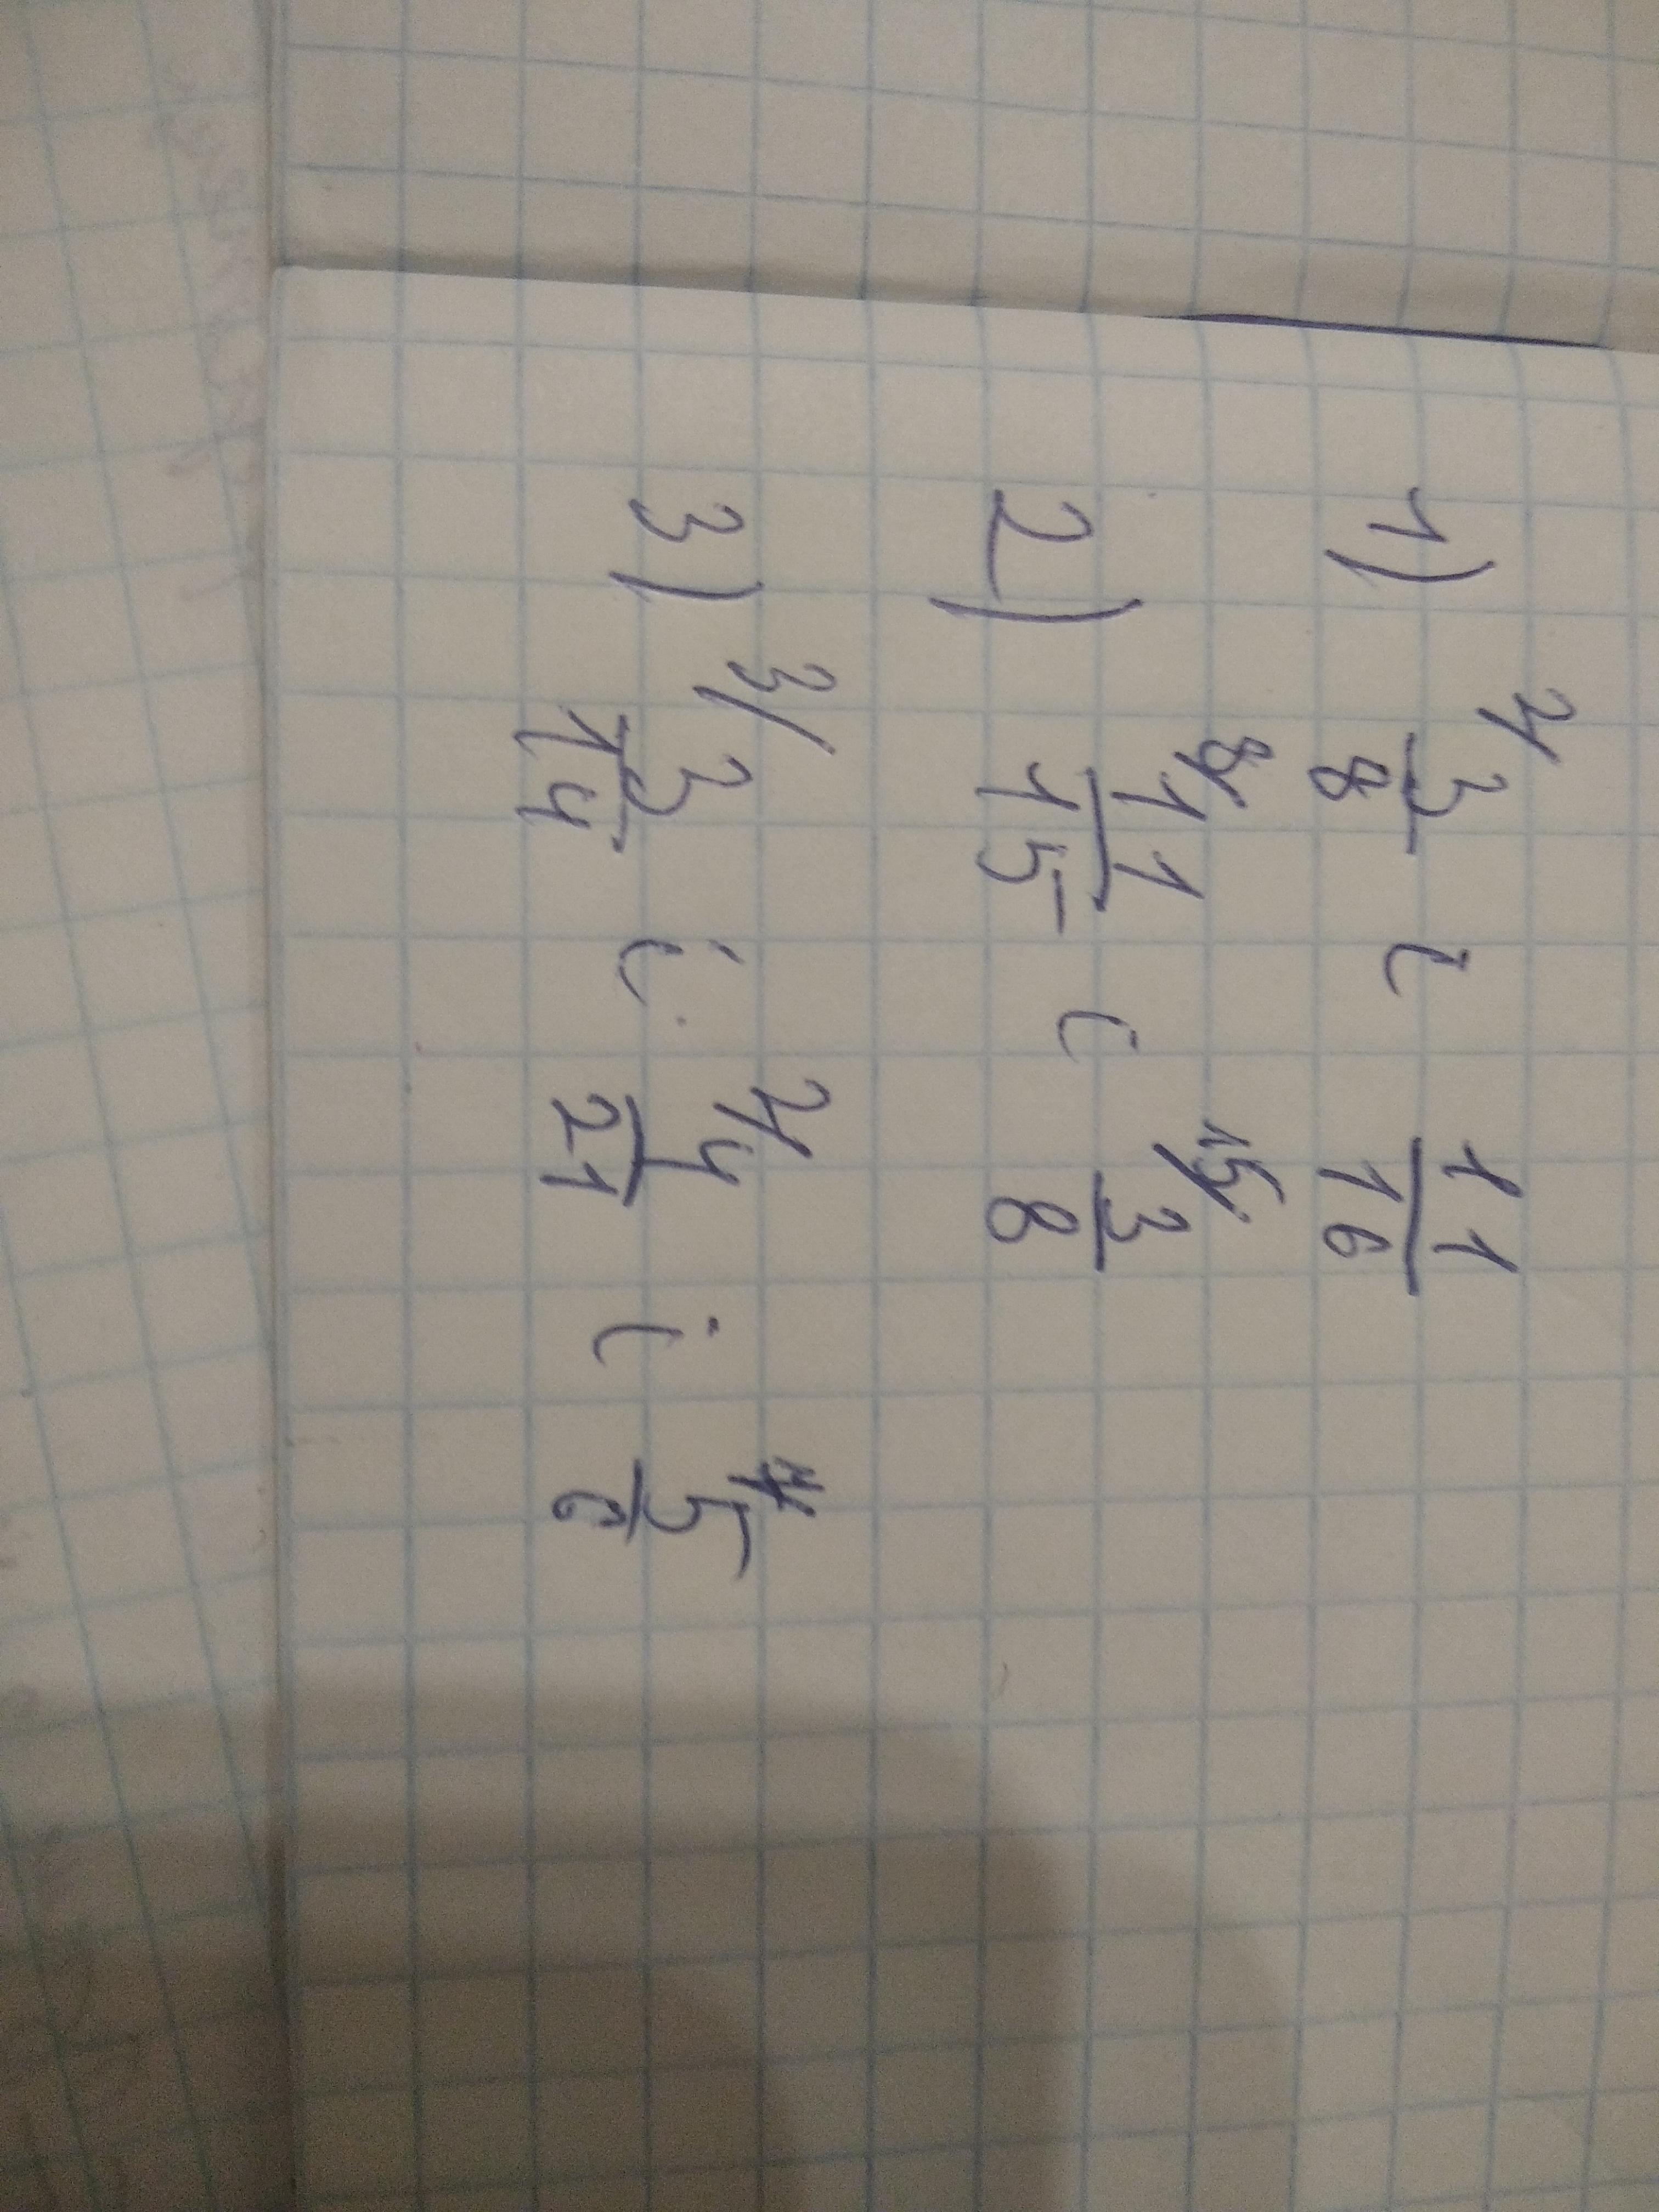 1) 2/ 3/8 i 11/16
2) 8/ 11/15 i 15/ 3/8
3) 3/ 3/14 i 2/ 4/21 i 5/6